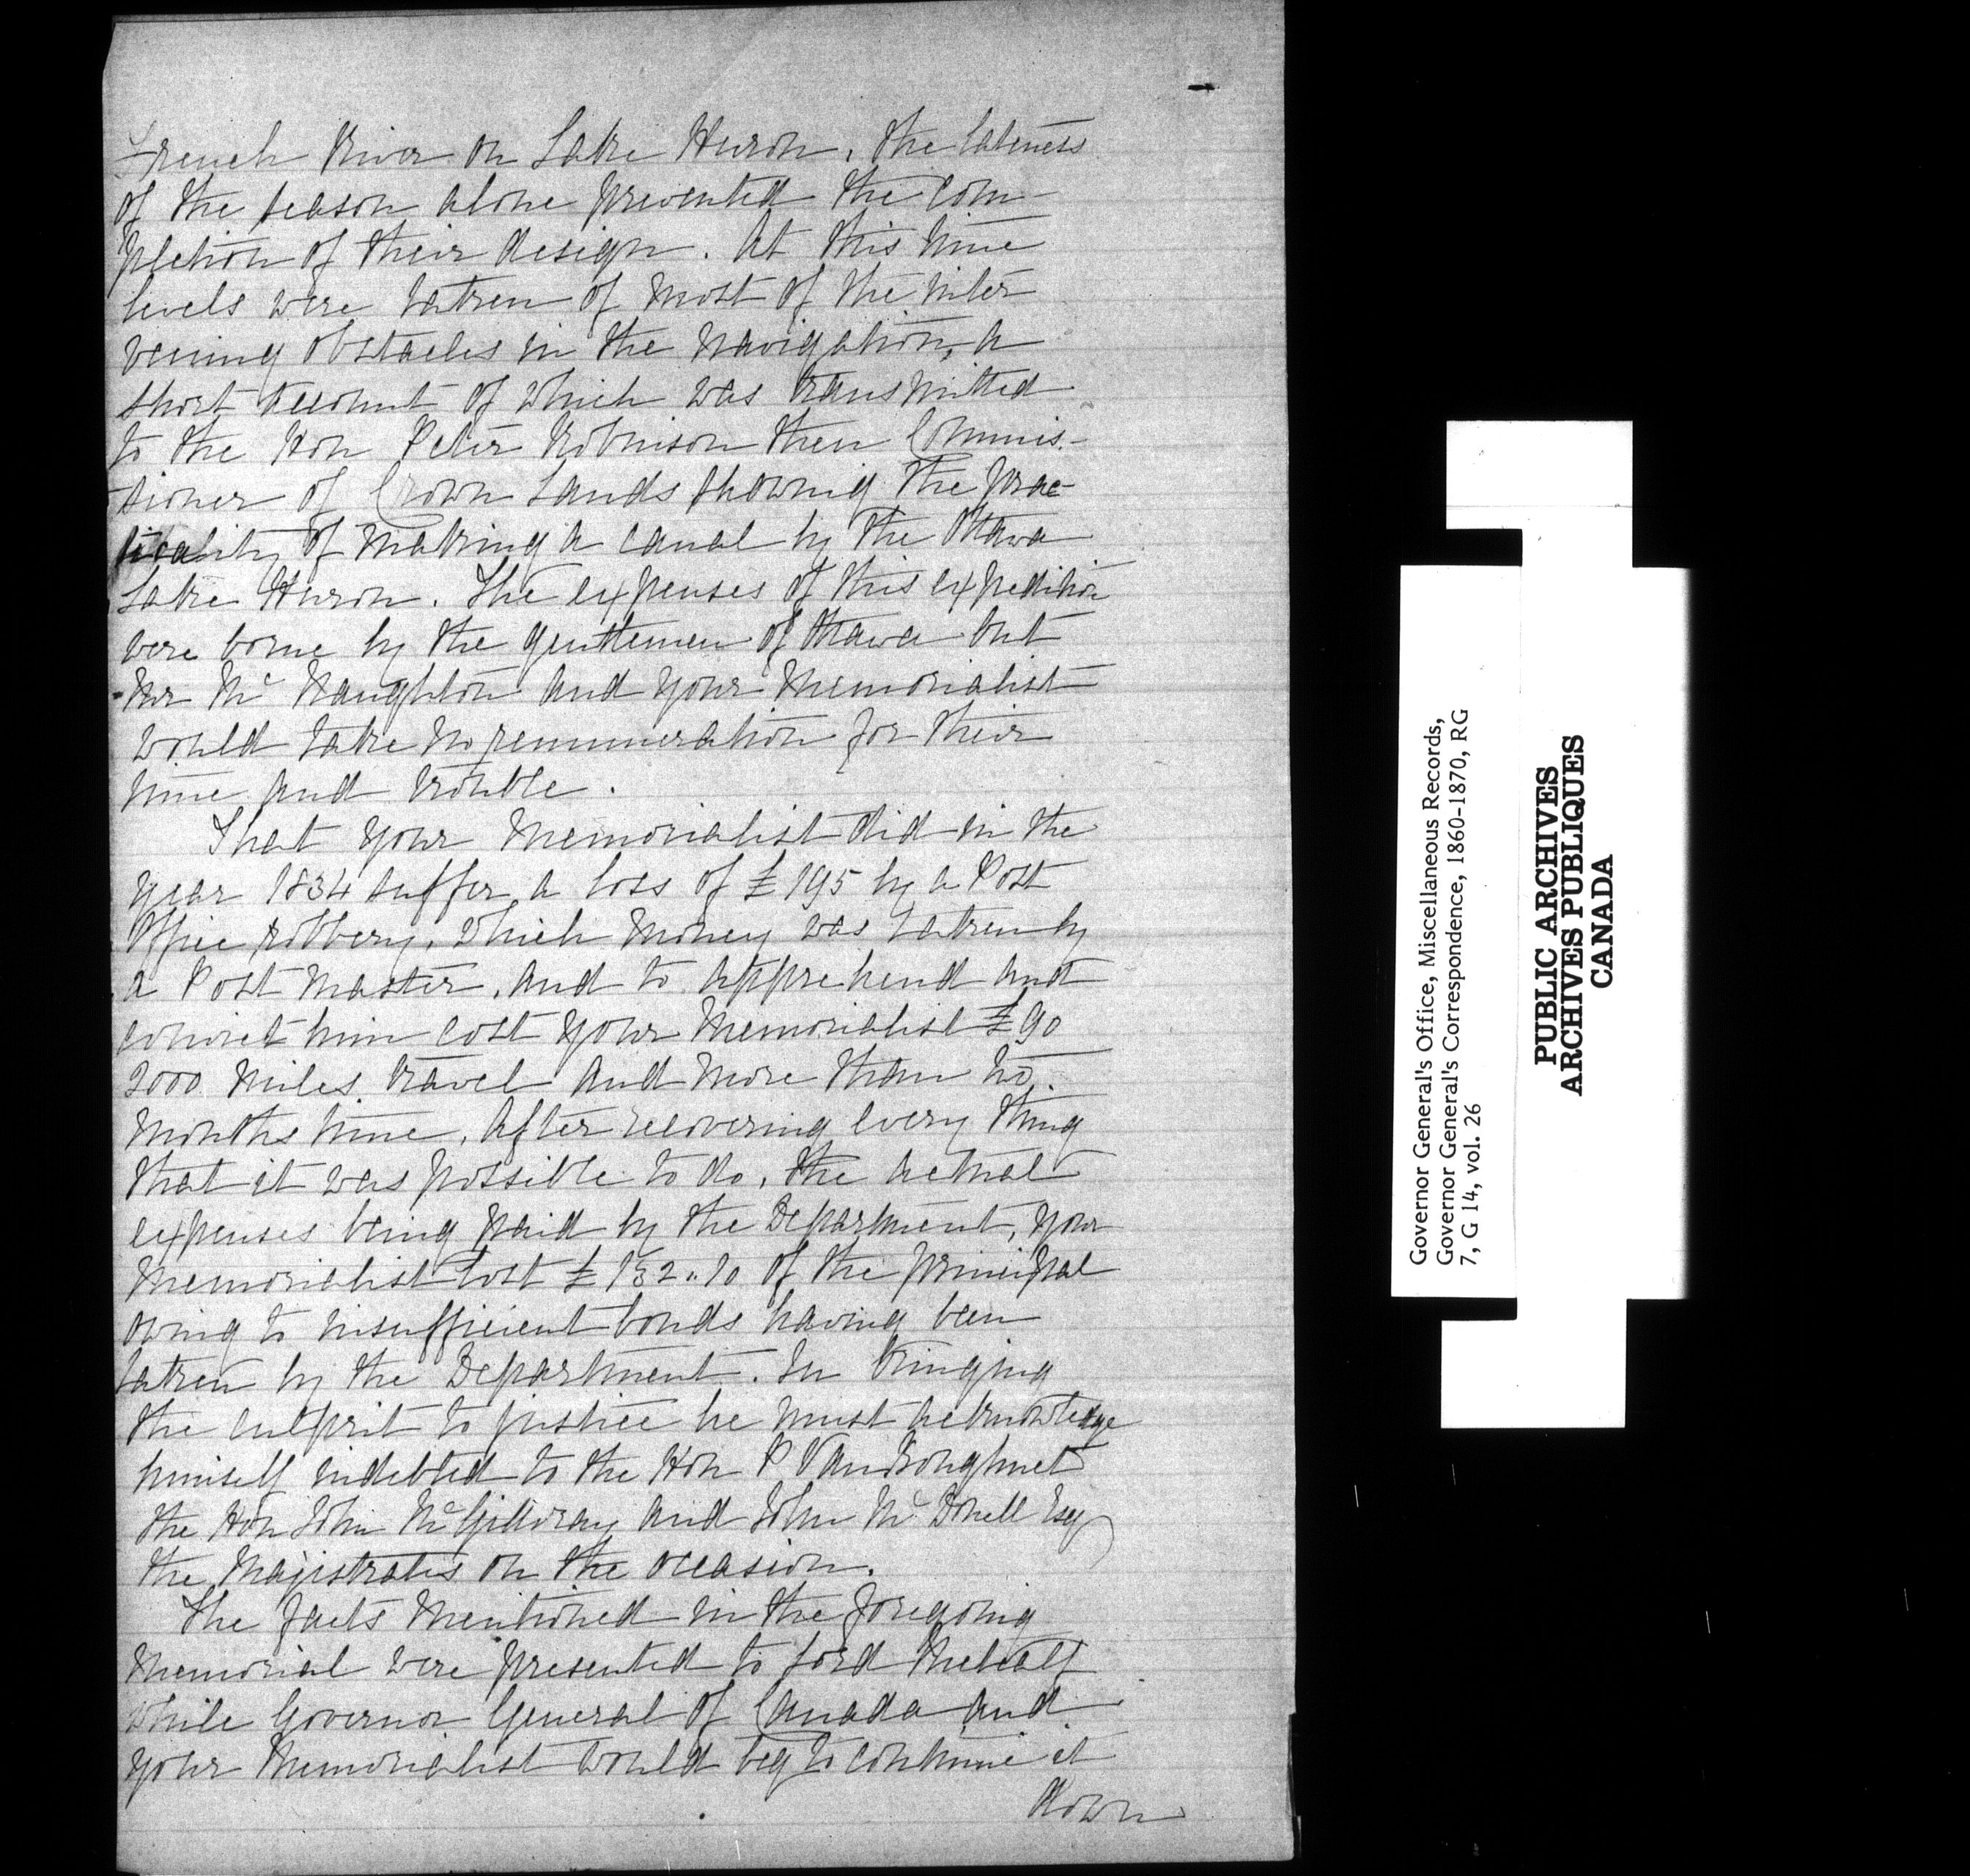 French River on Lake Huron, the lateness
of the season alone prevented the com-
pletion of their design. At this time
levels were taken of most of the inter
vening obstacles in the navigation, a
short account of which was transmitted
to the Hon Peter Robinson then Commis-
sioner of Crown Lands showing the prac-
ticality of making a canal by the Ottawa
Lake Huron. The expenses of this expedition
were borne by the gentlemen of Ottawa but
Mr McNaughton and your Memorialist
would take no remuneration for their
time and trouble.
That your Memorialist did in the
year 1834 suffer a loss of £195 by a Post
Office robbery, which money was taken by
a Post Master, and to apprehend and
convict him cost your Memorialist £90
2000 miles travel and more than two
months time. After recovering every thing
that it was possible to do, the actual
expenses being paid by the Department, your
Memorialist lost £132..10 of the principal
owing to insufficient bonds having been
taken by the Department. In bringing
the culprit to justice he must acknowledge
himself indebted to the Hon P VanKoughnet
the Hon John McGillivray and John McDonell Esq
the Magistrates on the occasion.
The facts mentioned in the foregoing
Memorial were presented to Lord Metcalf
while Governor General of Canada and
your Memorialist would beg to continue it
down
Governor General's Office, Miscellaneous Records,
Governor General's Correspondence, 1860-1870, RG
7, G 14, vol. 26
PUBLIC ARCHIVES
ARCHIVES PUBLIQUES
CANADA